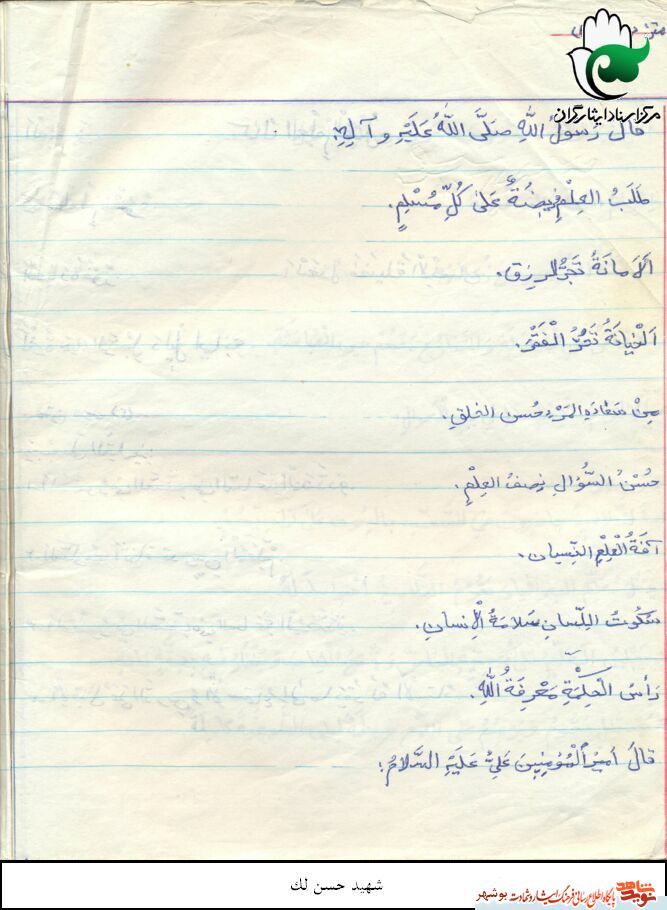 مرکز اسناد ایثارگران
قالَ رَسولُ اللهِ صَلَّی اللهُ عَلَیْهِ وَ آلِهِ:
طَلَبُ العِلْمِ فَریضَةٌ عَلیٰ کُلِّ مُسْلِمٍ.
اَلْاَمانَةُ تَجُرُّ الرِزق.
اَلْخیانَةُ تَجُرُّ الْفَقْرَ.
مِنْ سَعادَةِ المَرْءِ حُسن الخلقِ.
حُسْنُ السُّؤالِ نِصفُ العِلْمِ.
آفَةُ الْعِلْمِ النِّسیان.
سُکوتُ اللِّسانِ سَلامَةُ الْاِنسانِ.
رَأسُ الْحِکْمَةِ مَعْرِفَةُ اللهِ.
قالَ اَمیرُ الْمُؤمِنینَ عَلِیٌّ عَلَیْهِ السَّلامُ:
شهید حسن لك
نوید شاهد پایگاه اطلاع رسانی فرهنگ ایثار و شهادت بوشهر